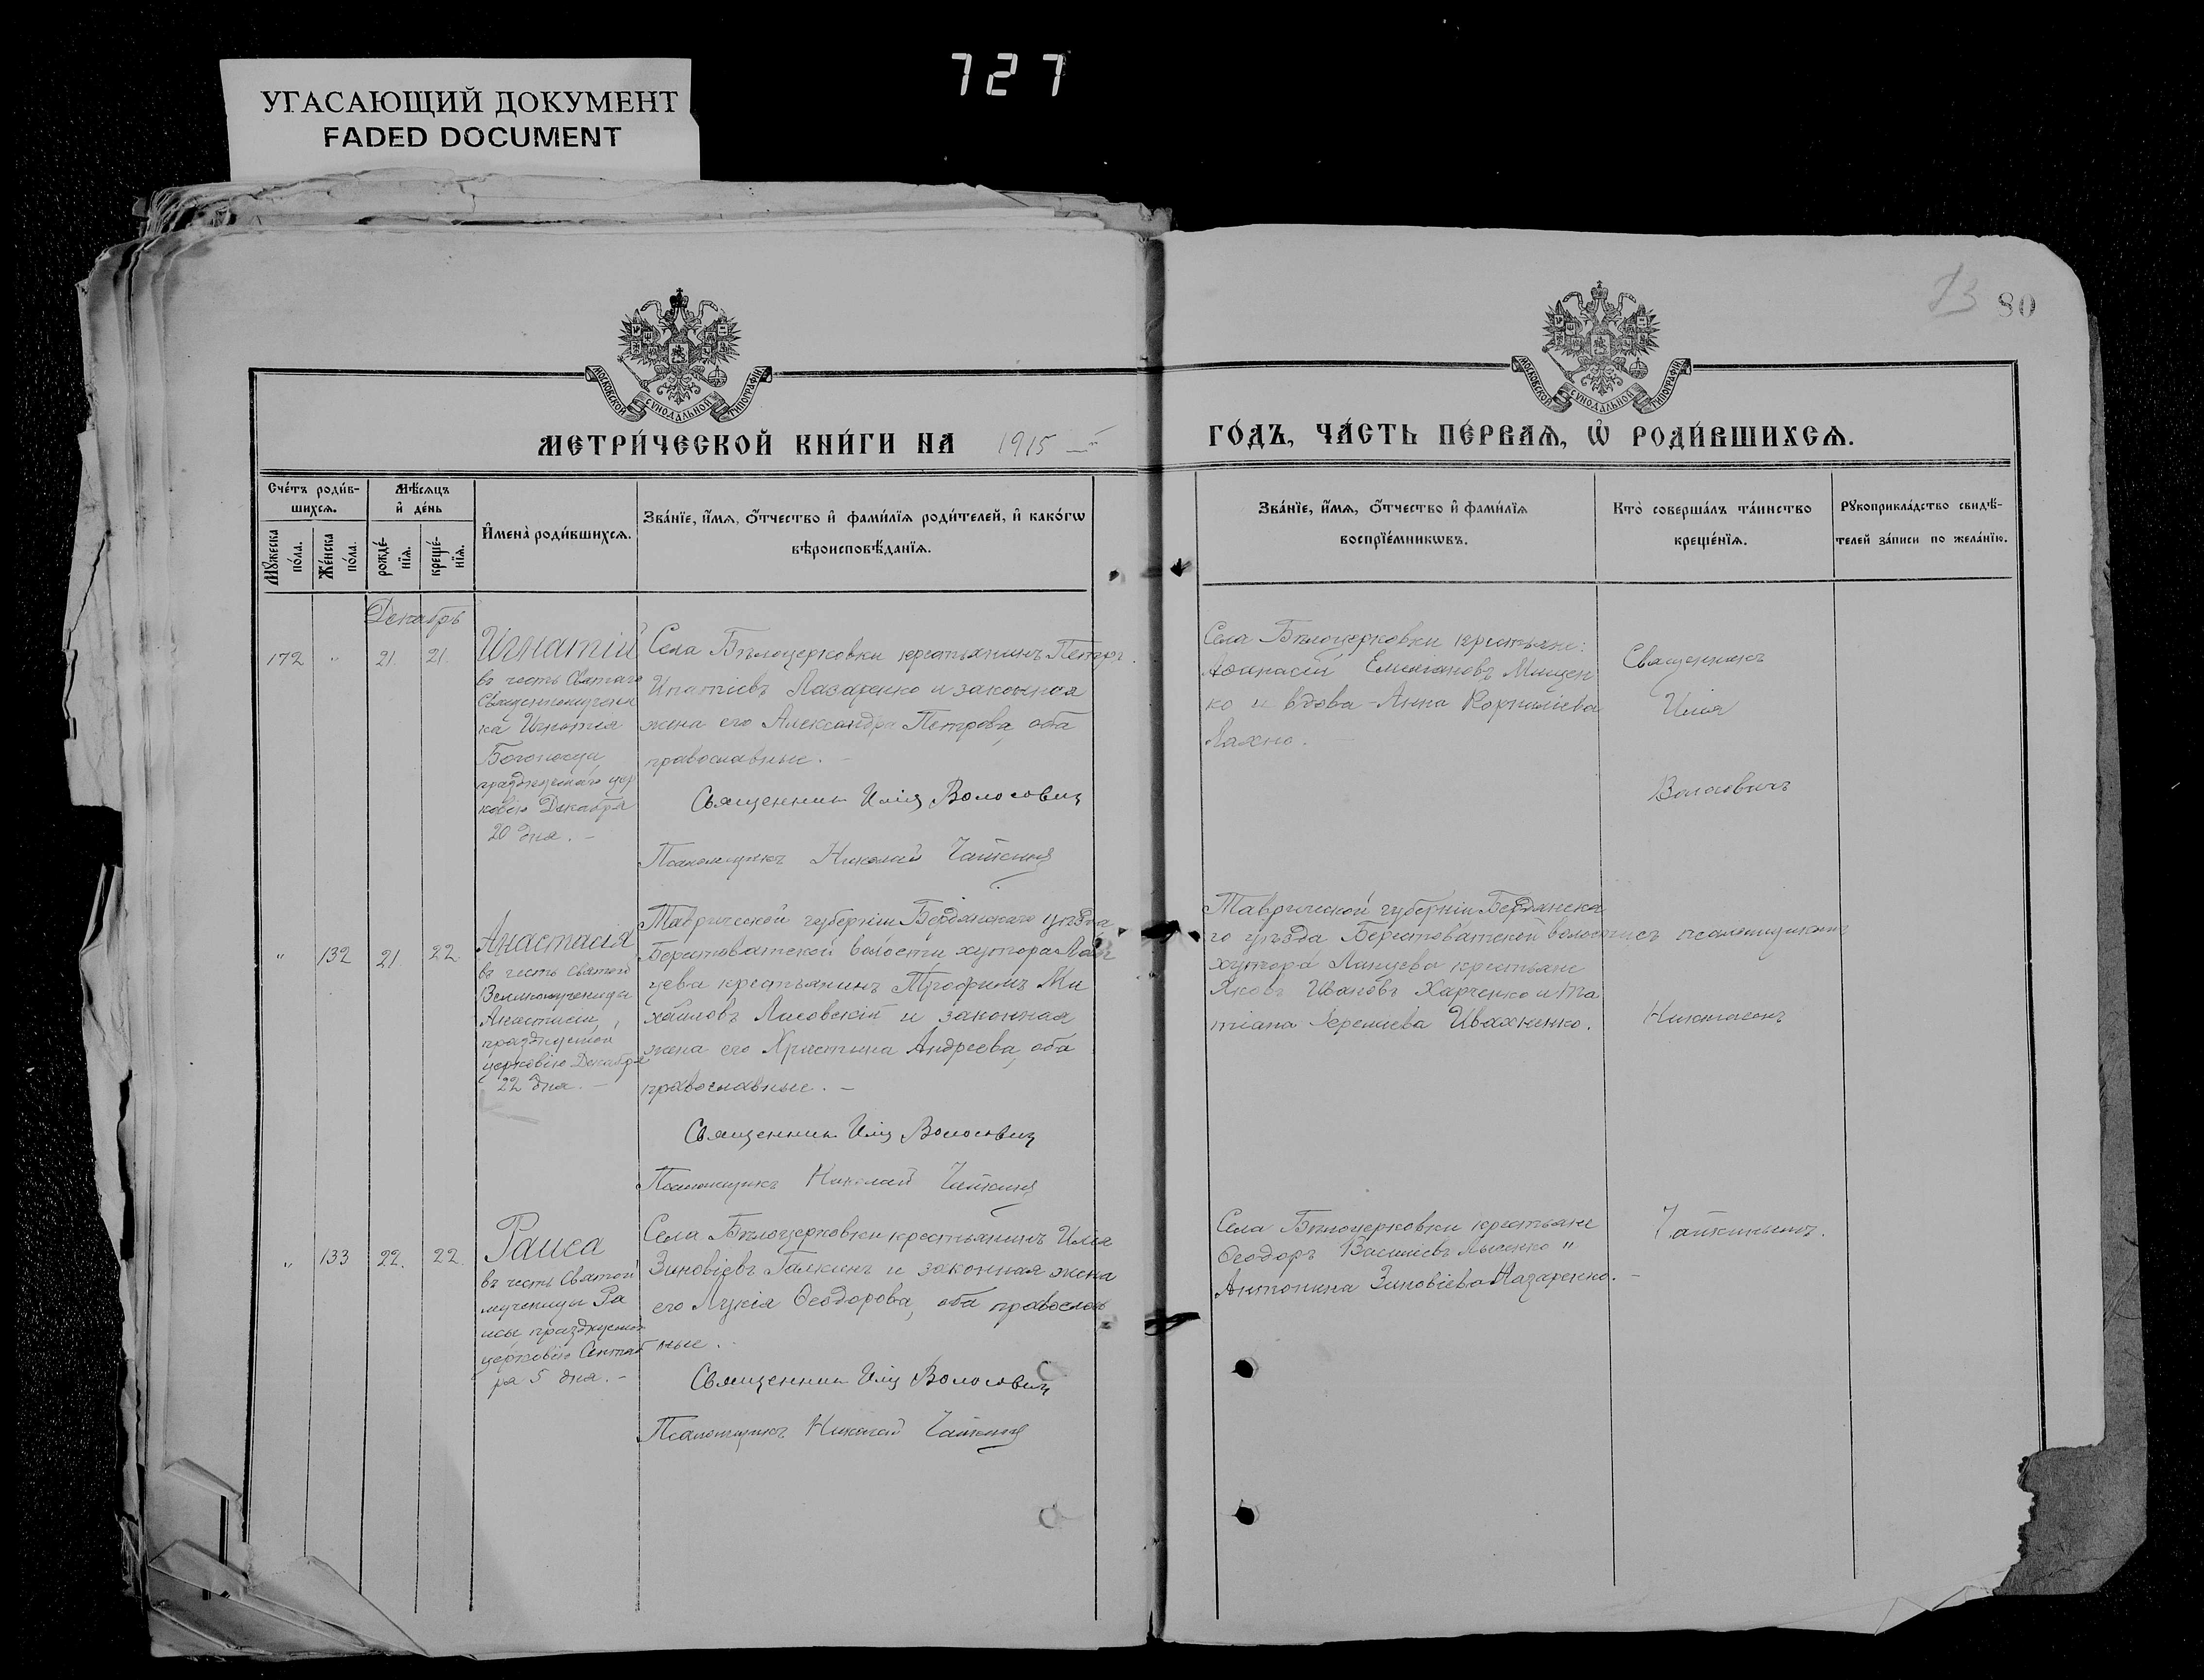 727
УГАСАЮЩИЙ ДОКУМЕНТ
FADED DOCUMENT
80
МОСКОВСКОЙ СѴНОДАЛЬНОЙ ТИПОГРАФІИ
МОСКОВСКОЙ СѴНОДАЛЬНОЙ ТИПОГРАФІИ
МЕТРИ́ЧЕСКОЙ КНИ́ГИ НА 1915
ГО́ДЪ, ЧА́СТЬ ПЕ́РВАѦ, Ѡ҆ РОДИ́ВШИХСѦ.
Сче́тъ роди́в-
шихсѧ.
Мѣ́сѧцъ
и҆ де́нь
Мꙋ́жеска
по́ла.
Же́нска
по́ла.
рожде́-
нїѧ.
креще́-
нїѧ.
И҆мена̀ роди́вшихсѧ.
Зва́нїе, и҆́мѧ, ѻ҆́тчество и҆ фами́лїѧ роди́телей, и҆ како́гѡ
вѣроисповѣ́данїѧ.
Зва́нїе, и҆́мѧ, ѻ҆́тчество и҆ фами́лїѧ
воспрїе́мникѡвъ.
Кто̀ соверша́лъ та́инство
креще́нїѧ.
Рꙋкоприкла́дство свидѣ́-
телей за́писи по жела́нїю.
Декабрь
172 " 21. 21.
Игнатій
въ честь Святаго
Священномучени
ка Игнатія
Богоносца,
празднуемаго цер
ковію Декабря
20 дня. —
Села Бѣлоцерковки крестьянинъ Петръ
Ипатіевъ Лазаренко и законная
жена его Александра Петрова, оба
православные. —
Священник Илія Волосович
Псаломщикъ Николай Чайкинъ
Села Бѣлоцерковки крестьяне:
Афанасій Емиліановъ Мищен
ко и вдова Анна Корниліева
Лахно. —
Священникъ
Илія
Волосовичъ
" 132 21. 22.
Анастасія
въ честь Святой
Великомученицы
Анастасіи,
празднуемой
церковію Декабря
22 дня. —
Таврической губерніи Бердянскаго уѣзда
Берестоватской волости, хутора Лан
цева крестьянинъ Трофимъ Ми
хайловъ Лисовскій и законная
жена его Христина Андреева, оба
православные. —
Священник Илія Волосович
Псаломщикъ Николай Чайкинъ
Таврической губерніи Бердянска
го уѣзда Берестоватской волости
хутора Ланцева крестьяне
Яковъ Ивановъ Харченко и Та
тіана Ивахненко.
съ псаломщикомъ
Николаемъ
" 133 22. 22.
Раиса
въ честь Святой
мученицы Ра
исы празднуемой
церковію Сентяб
ря 5 дня. —
Села Бѣлоцерковки крестьянинъ Илія
Зиновіевъ Галкинъ и законная жена
его Лукія Ѳеодорова, оба православ
ные.
Священник Илія Волосович
Псаломщикъ Николай Чайкинъ
Села Бѣлоцерковки крестьяне
Ѳеодоръ Василіевъ Лысенко и
Антонина Зиновіева Назаренко. —
Чайкинымъ.